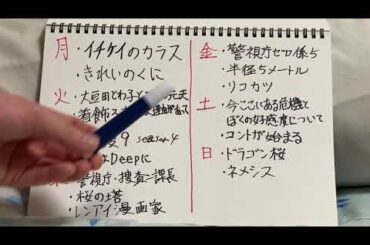 月 ・イチケイのカラス
・きれいのくに
火 ・大豆田とわ子と 元夫
・着飾る
9 season4
Deepに
・警視庁・捜査二課長
・桜の塔
・レンアイ漫画家
金 ・警視庁ゼロ係5
・半径5メートル
・リコカツ
土 ・今ここにある危機と
ぼくの好感度について
・コントが始まる
日 ・ドラゴン桜
・ネメシス